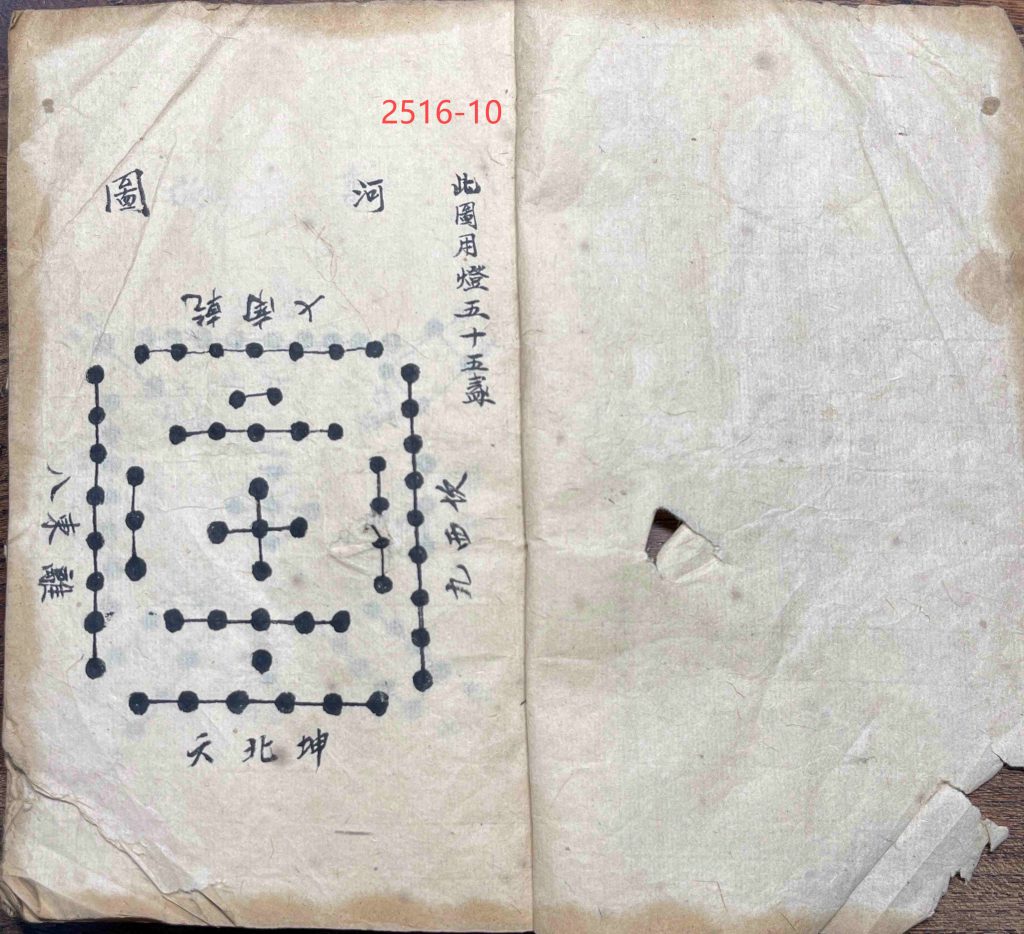 2516-10
河圖
此圖用燈五十五盞
乾南七
坎西九
離東八
坤北六